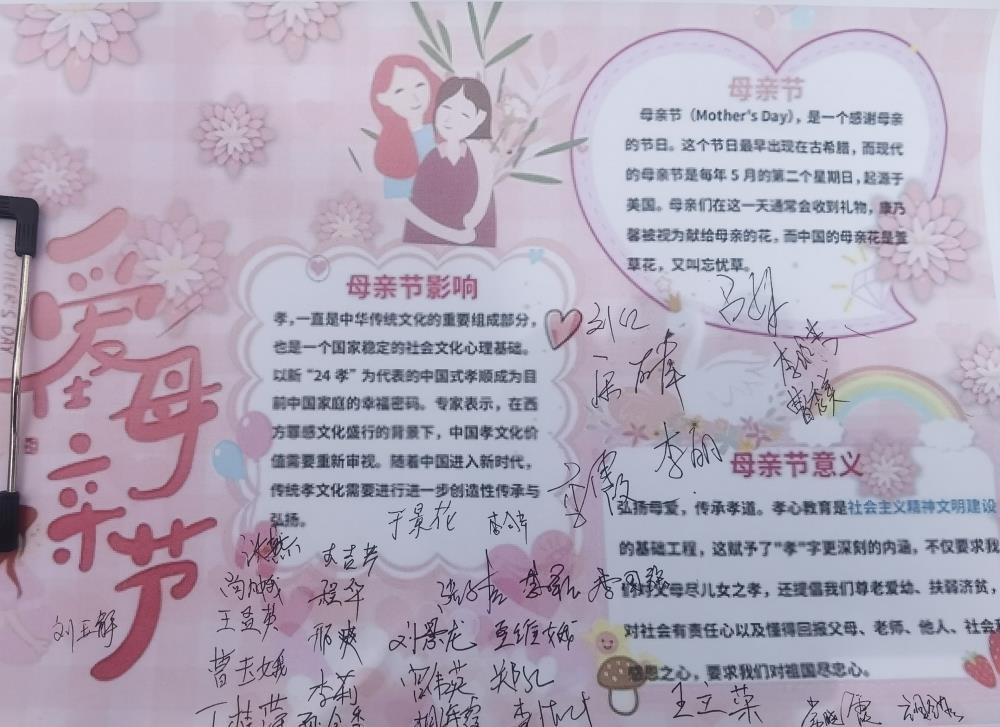 爱
母
亲
节
MOTHER'S DAY
母亲节
母亲节（Mother's Day），是一个感谢母亲
的节日。这个节日最早出现在古希腊，而现代
的母亲节是每年 5 月的第二个星期日，起源于
美国。母亲们在这一天通常会收到礼物，康乃
馨被视为献给母亲的花，而中国的母亲花是萱
草花，又叫忘忧草。
母亲节影响
孝，一直是中华传统文化的重要组成部分，
也是一个国家稳定的社会文化心理基础。
以新“24 孝”为代表的中国式孝顺成为目
前中国家庭的幸福密码。专家表示，在西
方罪感文化盛行的背景下，中国孝文化价
值需要重新审视。随着中国进入新时代，
传统孝文化需要进行进一步创造性传承与
弘扬。
母亲节意义
弘扬母爱，传承孝道。孝心教育是社会主义精神文明建设
的基础工程，这赋予了"孝"字更深刻的内涵，不仅要求我
们对父母尽儿女之孝，还提倡我们尊老爱幼、扶弱济贫，
对社会有责任心以及懂得回报父母、老师、他人、社会
感恩之心，要求我们对祖国尽忠心。
李丽
于景花
程华
王孟英
刘玉静
邢爽
刘景龙
李莉
王立荣